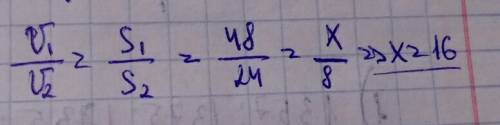 V₁/V₂ = S₁/S₂ = 48/24 = X/8 => X = 16